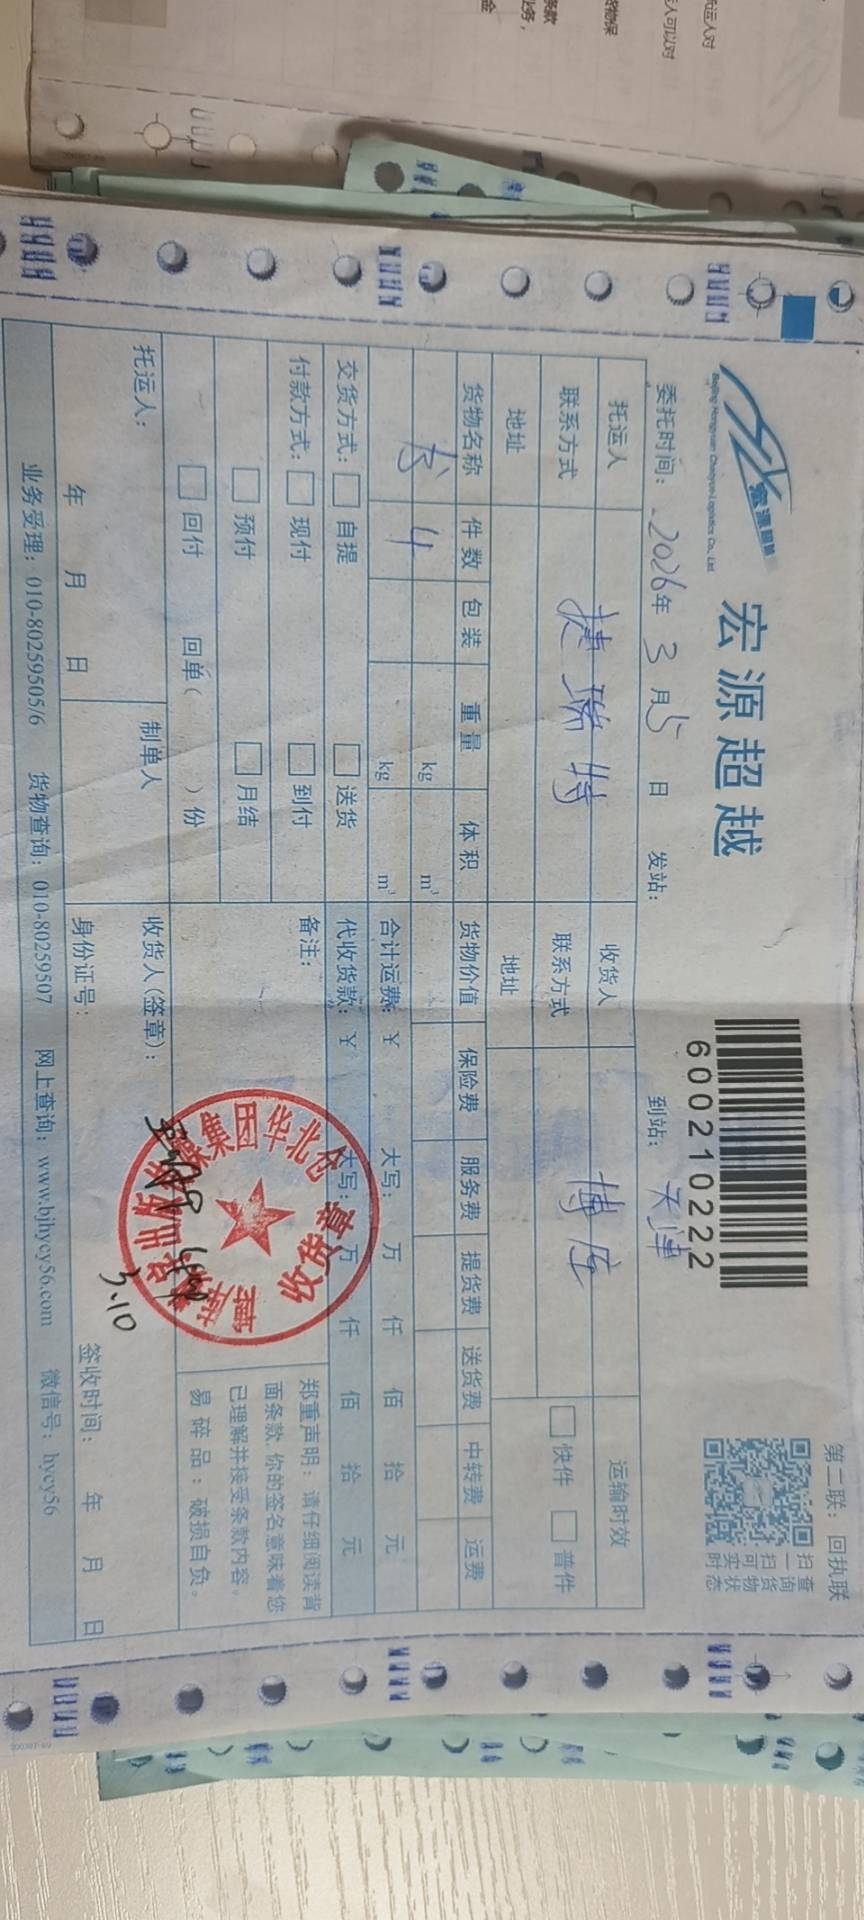 第二联：回执联
宏源超越
Beijing Hongyuan Chaoyue Logistics Co., Ltd.
宏源超越
600210222
扫一扫可实时
查询货物状态
委托时间：2026年 3月5日 发站： 到站：天津
托运人 捷瑞特 收货人 博库 运输时效
联系方式 联系方式 快件 普件
地址 地址
货物名称 件数 包装 重量 体积 货物价值 保险费 服务费 提货费 送货费 中转费 运费
书 4 kg m³
kg m³ 合计运费：¥ 大写： 万 仟 佰 拾 元
交货方式： 自提 送货 代收货款：¥ 大写： 万 仟 佰 拾 元
付款方式： 现付 到付 备注：
预付 月结
回付 回单（ ）份
郑重声明：请仔细阅读背
面条款，你的签名意味着您
已理解并接受条款内容。
易碎品：破损自负。
托运人： 制单人 收货人(签章)：
年 月 日 身份证号： 签收时间： 年 月 日
集团华北仓
收货章
3.10
业务受理：010-80259505/6 货物查询：010-80259507 网上查询：www.bjhycy56.com 微信号：hycy56